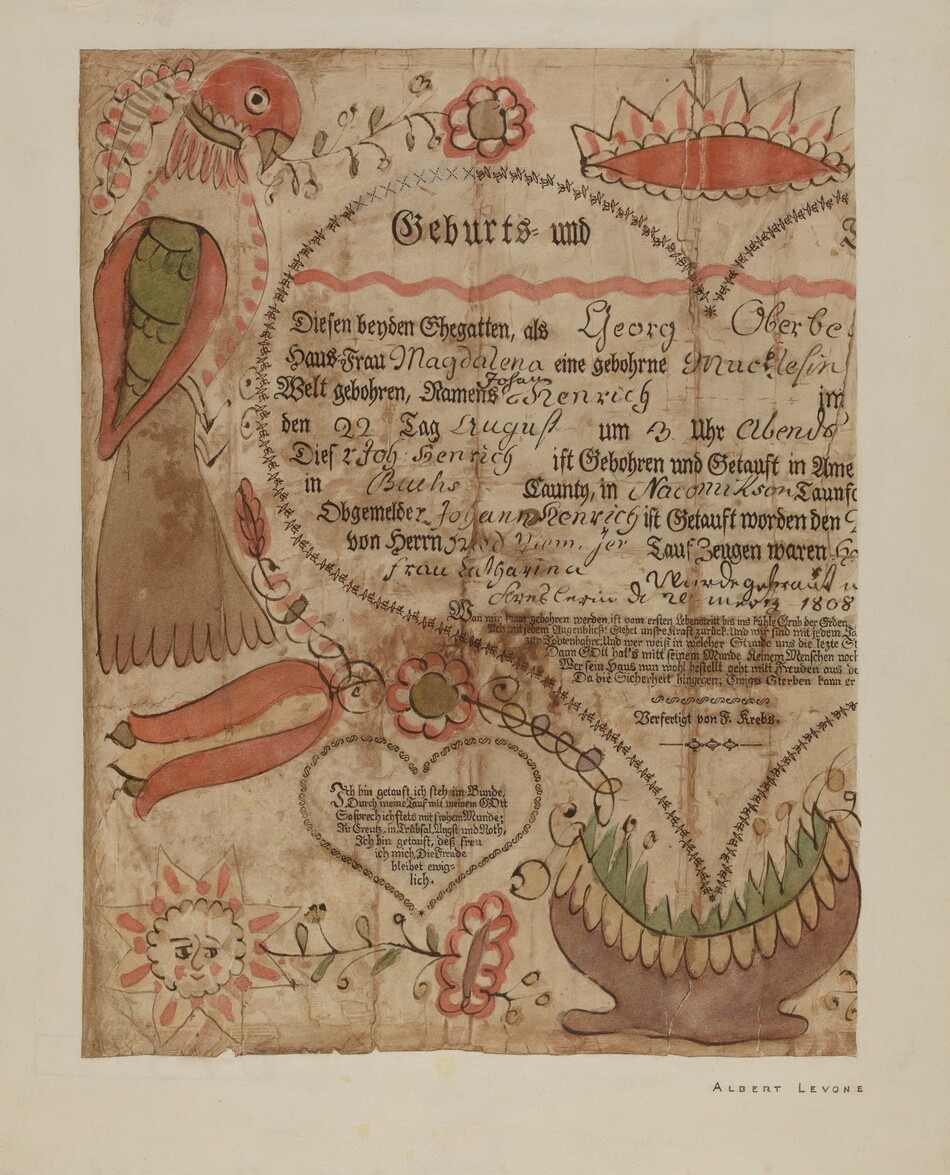 Geburts- und
Diesen beyden Ehegatten, als Georg Oberbe
Haus-Frau Magdalena eine gebohrne Mucklesin
Johan
Welt gebohren, Namens Henrich im
den 22 Tag August um 3 Uhr Abends
Dieser Joh Henrich ist Gebohren und Getauft in Ame
in Buchs County, in Nacomikson Taunf
Obgemelder Johann Henrich ist Getauft worden den
von Herrn Tauf Zeugen waren
frau Catharina
Wurde getrauft
den 20 mertz 1808
Wan wir kaum gebohren werden, ist vom ersten Lebenstritt bis ins kühle Grab der Erden
mit jedem Augenblick! Gehet unsre Kraft zurück. Und wir sind mit jedem Ja
zur Todtenbahre; Und wer weiß in welcher Stunde uns die lezte St
Dann GOtt hat's mitt seinem Munde Keinem Menschen noch
Wer sein Haus nun wohl bestellt geht mitt Freuden aus de
Da die Sicherheit hingegen; Ewigs Sterben kann er
Verfertigt von F. Krebs.
Ich bin getauft, ich steh im Bunde,
Durch meine Tauf mit meinem GOtt
So sprech ich stets mit frohem Munde;
In Creutz, in Trübsal, Angst und Noth,
Ich bin getauft, deß freu
ich mich, Die Freude
bleibet ewig-
lich.
Albert Levone